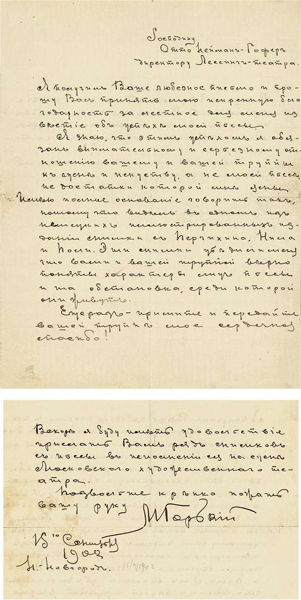 Господину
Отто Нейман-Гофер
Директору Лессинг-театра.
Я получил Ваше любезное письмо и про-
шу Вас принять мою искреннюю бла-
годарность за лестное для меня из-
вестие об успехе моей пьесы.
Я знаю, что этим успехом я обя-
зан внимательному и серьезному от-
ношению вашему и вашей труппы
к и искусству, а не моей пьесе,
недостатки которой мне ясны.
Имею полное основание говорить так,
потому что видел в одном из
немецких иллюстрированных из-
даний снимки с Перчихина, Нила
и Поли. Эти снимки убедили меня
что вами и вашей труппой верно
поняты характеры лиц пьесы
и та обстановка, среди которой
они живут.
примите и передайте
вашей труппе мое сердечное
спасибо!
Вскоре я буду иметь удовольствие
прислать Вам ряд снимков
с пьесы в исполнении ея на сцене
Московского художественного те-
атра.
Позвольте крепко пожать
вашу руку
М Горький
15го Сентября
1902
Н.-Новгород.